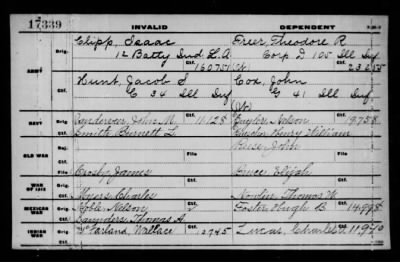 17339
INVALID
DEPENDENT
Clipp, Isaac
Freer, Theodore R
Orig. 12 Batty Ind L.A.
Corp D 105 Ill Inf
Ctf. 160757
ARMY
Hunt, Jacob S
Cox, John
Orig. G 34 Ill Inf
G 41 Ill Inf
Ctf.
NAVY
Orig. John M. 11128
Nelson 19758
Ctf. Smith, Burnett L.
Henry William
OLD WAR
Orig.
Reese, John
File
File
WAR OF 1812
Orig. Crosby, James
Bruce, Elijah
Ctf.
MEXICAN WAR
Orig. Charles
Thomas W
Ctf. Nelson
Foster, Hugh B 14998
INDIAN WAR
Orig. Saunders, Thomas A.
Ctf. McFarland, Wallace 2745
Lucas, Charles 11970